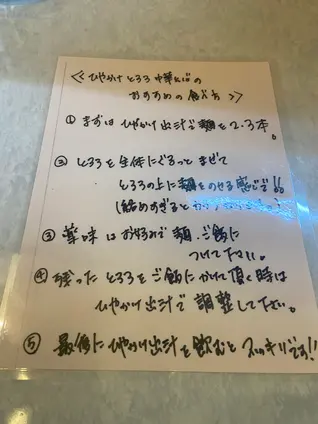 ≪ひやかけとろろ中華そばの
おすすめの食べ方≫
① まずはひやかけ出汁で麺を2.3本。
② とろろを全体にぐるっとまぜて
とろろの上に麺をのせる感じで!!
(絡めすぎると
③ 薬味はお好みで麺、ご飯に
つけて下さい。
④ 残ったとろろをご飯にかけて頂く時は
ひやかけ出汁で調整して下さい。
⑤ 最後にひやかけ出汁を飲むとスッキリです!!